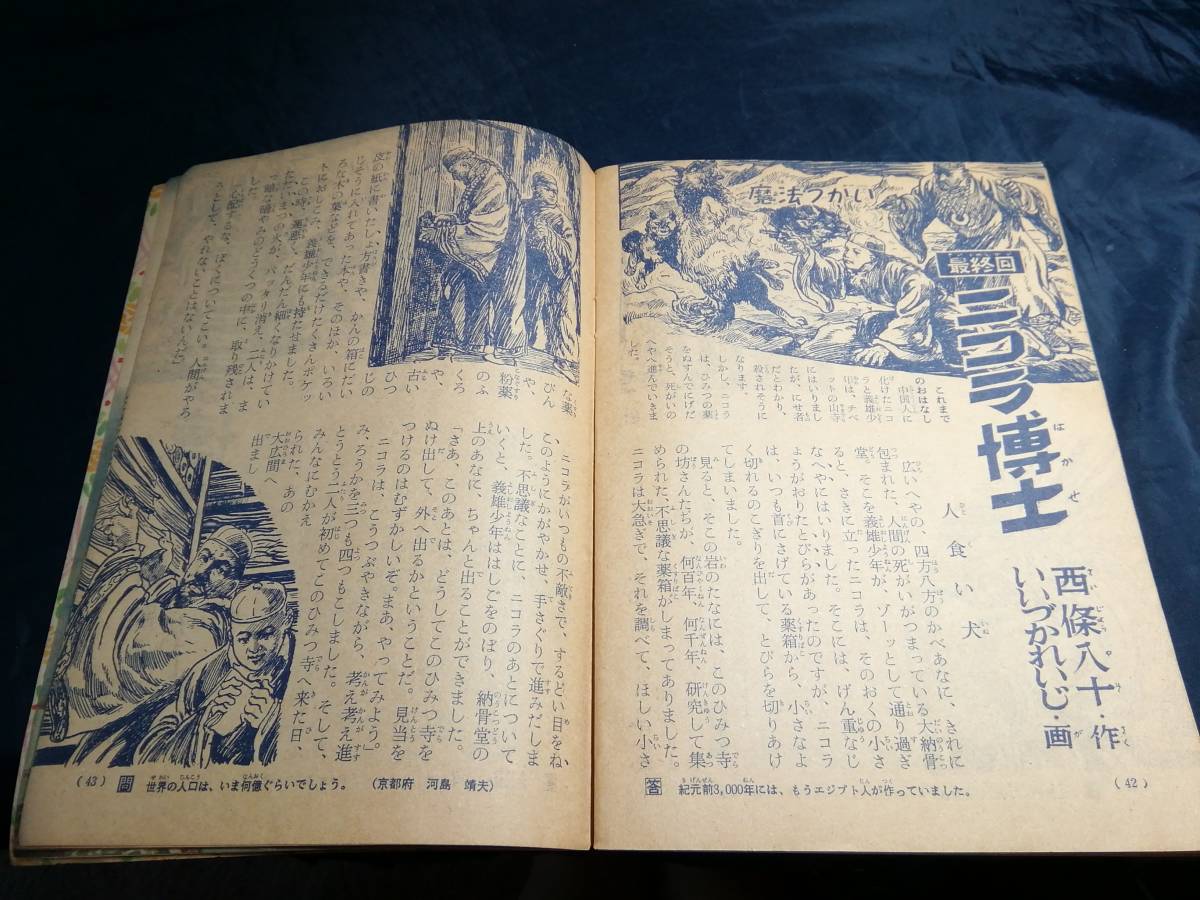 魔法つかい
最終回
ニコラ博士
はかせ
西條八十・作
いいづかれいじ・画
これまで
のおはなし
中国人に
化けたニコ
ラと義雄少
年は、チベ
ットの山寺
にはいりまし
たが、にせ者
だとわかり、
殺されそうに
なります。
しかし、ニコラ
は、ひみつの薬
をぬすんでにげだ
そうと、死がいの
へやへ進んでいきま
した。
人食い犬
広いへやの、四方八方のかべあなに、きれに
包まれた、人間の死がいがつまっている大納骨
堂。そこを義雄少年が、ゾーッとして通り過ぎ
ると、さきに立ったニコラは、そのおくの小さ
なへやにはいりました。そこには、げん重なじ
ょうがおりたとびらがあったのですが、ニコラ
は、いつも首にさげている薬箱から、小さなよ
く切れるのこぎりを出して、とびらを切りあけ
てしまいました。
見ると、そこの岩のたなには、このひみつ寺
の坊さんたちが、何百年、何千年、研究して集
められた、不思議な薬箱がしまってありました。
ニコラは大急ぎで、それを調べて、ほしい小さ
答 紀元前3,000年には、もうエジプト人が作っていました。
(42)
な薬
びん
や、
粉薬
のふ
くろ
や、
古い
ひつ
じの
皮の紙に書いたしょ方書きや、かんの箱にだい
じそうに入れてあった本や、そのほか、いろい
ろな木の葉などを、できるだけたくさんポケッ
トにおしこみ、義雄少年にも持たせました。
この時、運悪く、だんだん細くなりかけてい
たたいまつの火が、パッタリ消え、二人は、ま
っ暗な暗やみのどうくつの中に、取り残されま
した。
「心配するな、ぼくについてこい。人間がやろ
うとして、やれないことはないんだ」
ニコラがいつもの不敵さで、するどい目をね
このようにかがやかせ、手さぐりで進みだしま
した。不思議なことに、ニコラのあとについて
いくと、義雄少年ははしごをのぼり、納骨堂の
上のあなに、ちゃんと出ることができました。
「さあ、このあとは、どうしてこのひみつ寺を
ぬけ出して、外へ出るかということだ。見当を
つけるのはむずかしいぞ。まあ、やってみよう」
ニコラは、こうつぶやきながら、考え考え進
み、ろうかを三つも四つもこしました。そして、
とうとう二人が初めてこのひみつ寺へ来た日、
みんなにむかえ
られた、あの
大広間へ
出まし
問 世界の人口は、いま何億ぐらいでしょう。 (京都府 河島 靖夫)
(43)